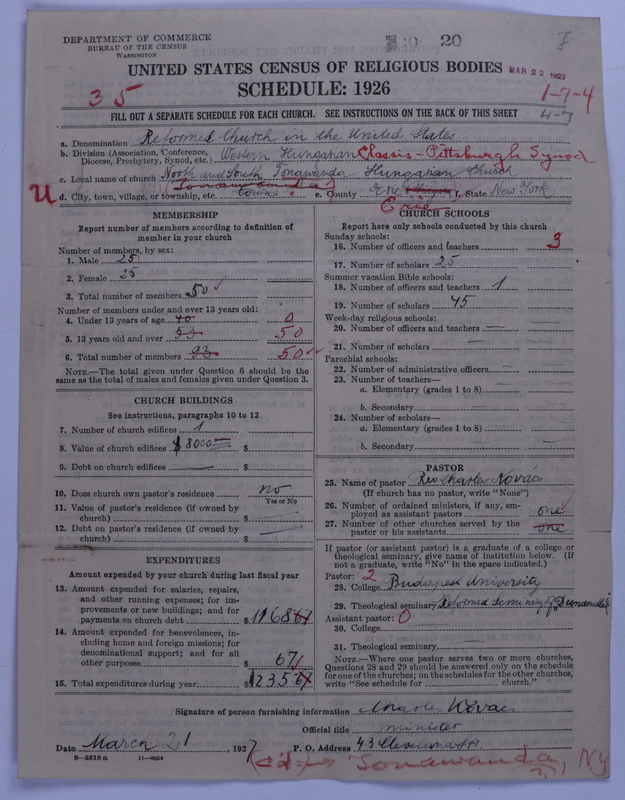 DEPARTMENT OF COMMERCE
BUREAU OF THE CENSUS
WASHINGTON
20
UNITED STATES CENSUS OF RELIGIOUS BODIES
MAR 22 1927
SCHEDULE: 1926
35
1-7-4
4-7
FILL OUT A SEPARATE SCHEDULE FOR EACH CHURCH. SEE INSTRUCTIONS ON THE BACK OF THIS SHEET
a. Denomination Reformed Church in the United States
b. Division (Association, Conference, Diocese, Presbytery, Synod, etc.) Western Hungarian Classis - Pittsburgh Synod
c. Local name of church North and South Tonawanda Hungarian Church
U
d. City, town, village, or township, etc. town e. County Erie f. State New York
Erie
MEMBERSHIP
Report number of members according to definition of member in your church
Number of members, by sex:
1. Male 25
2. Female 25
3. Total number of members 50
Number of members under and over 13 years old:
4. Under 13 years of age 40 0
5. 13 years old and over 53 50
6. Total number of members 93 50
NOTE.—The total given under Question 6 should be the same as the total of males and females given under Question 3.
CHURCH BUILDINGS
See instructions, paragraphs 10 to 12
7. Number of church edifices 1
8. Value of church edifices $ 8000 $
9. Debt on church edifices $
10. Does church own pastor's residence no
Yes or No
11. Value of pastor's residence (if owned by church) $
12. Debt on pastor's residence (if owned by church) $
EXPENDITURES
Amount expended by your church during last fiscal year
13. Amount expended for salaries, repairs, and other running expenses; for improvements or new buildings; and for payments on church debt $
14. Amount expended for benevolences, including home and foreign missions; for denominational support; and for all other purposes $ 67
15. Total expenditures during year $
CHURCH SCHOOLS
Report here only schools conducted by this church
Sunday schools:
16. Number of officers and teachers 3
17. Number of scholars 25
Summer vacation Bible schools:
18. Number of officers and teachers 1
19. Number of scholars 45
Week-day religious schools:
20. Number of officers and teachers
21. Number of scholars
Parochial schools:
22. Number of administrative officers
23. Number of teachers—
a. Elementary (grades 1 to 8)
b. Secondary
24. Number of scholars—
a. Elementary (grades 1 to 8)
b. Secondary
PASTOR
25. Name of pastor Rev Charles Kovác
(If church has no pastor, write "None")
26. Number of ordained ministers, if any, employed as assistant pastors one
27. Number of other churches served by the pastor or his assistants one
If pastor (or assistant pastor) is a graduate of a college or theological seminary, give name of institution below. (If not a graduate, write "No" in the space indicated.)
Pastor: 2
28. College Budapest University
29. Theological seminary Reformed Seminary of
Assistant pastor: 0
30. College
31. Theological seminary
NOTE.—Where one pastor serves two or more churches, Questions 28 and 29 should be answered only on the schedule for one of the churches; on the schedules for the other churches, write "See schedule for church."
Signature of person furnishing information Charles Kovac
Official title minister
Date March 21, 1927 P. O. Address 43 Cleveland St.
8—5518 a 11—9054
Tonawanda, NY